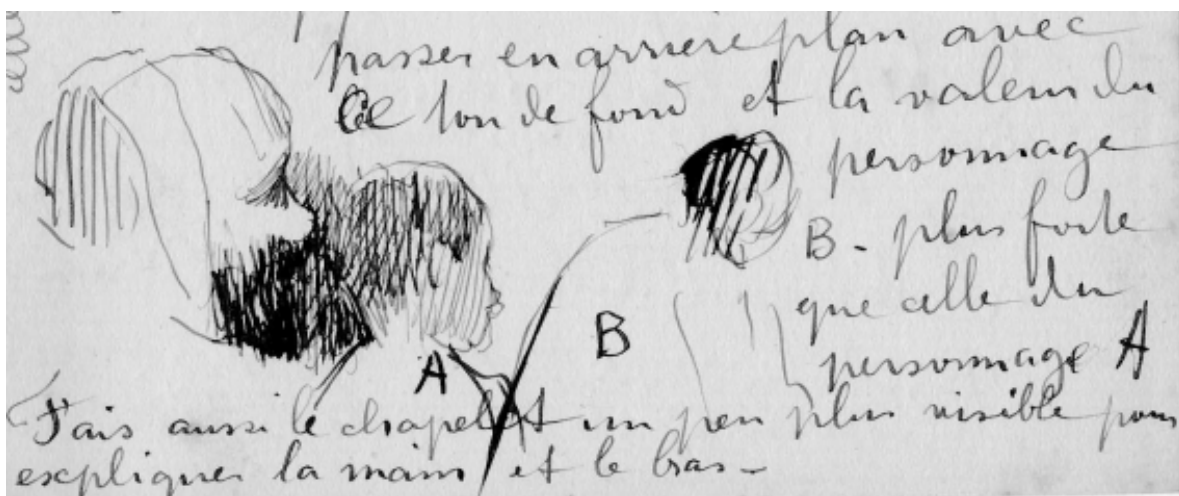 passer en arrière plan avec
le ton de fond et la valeur du
personnage
B - plus forte
que celle du
personnage A
A
B
Fais aussi le chapelet un peu plus visible pour
expliquer la main et le bras -